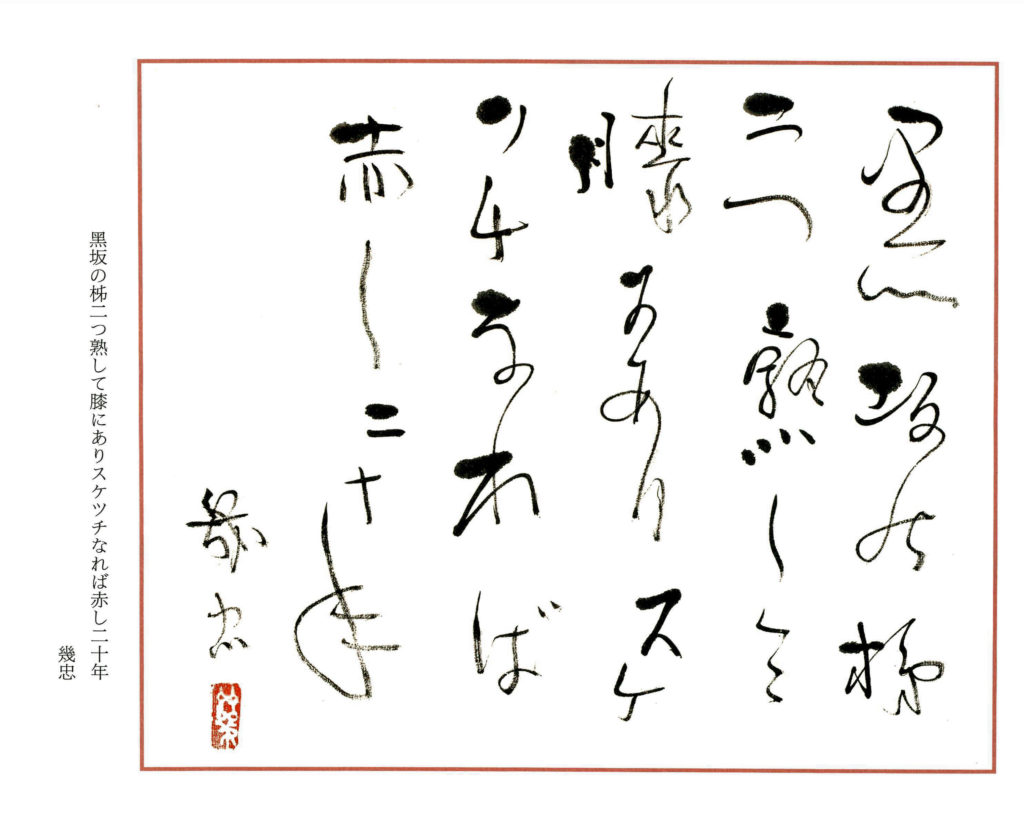 黑坂の柹
二つ熟して
膝にありスケ
ツチなれば
赤し二十年
幾忠
黑坂の柹二つ熟して膝にありスケツチなれば赤し二十年
幾忠